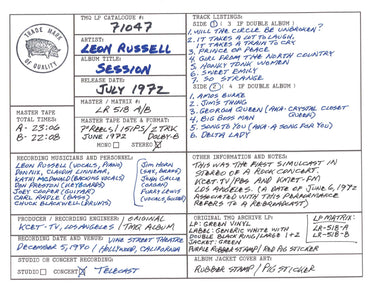 TRADE MARK
OF QUALITY
TMQ LP CATALOGUE #:
71047
ARTIST:
LEON RUSSELL
ALBUM TITLE:
SESSION
RELEASE DATE:
JULY 1972
TRACK LISTINGS:
SIDE (1: 3 IF DOUBLE ALBUM)
1. WILL THE CIRCLE BE UNBROKEN?
2. IT TAKES A LOT TO LAUGH,
IT TAKES A TRAIN TO CRY
3. PRINCE OF PEACE
4. GIRL FROM THE NORTH COUNTRY
5. HONKY TONK WOMEN
6. SWEET EMILY
7. SO STRANGE
SIDE (2: 4 IF DOUBLE ALBUM)
1. AMOS BURKE
2. JIM'S THING
3. GEORGIA QUEEN (AKA: CRYSTAL CLOSET
QUEEN)
4. BIG BOSS MAN
5. SONG TO YOU (AKA: A SONG FOR YOU)
6. DELTA LADY
MASTER TAPE
TOTAL TIMES:
A - 23:06
B - 22:08
MASTER / MATRIX #:
LR 518 A/B
MASTER TAPE DATE & FORMAT:
7" REELS / 15 IPS / 2 TRK
JUNE 1972 DOLBY-B
MONO STEREO
RECORDING MUSICIANS AND PERSONNEL:
LEON RUSSELL (VOCALS, PIANO)
DON NIX, CLAUDIA LINNEAR,
KATHI McDONALD (BACKING VOCALS)
DON PRESTON (KEYBOARDS)
JOEY COOPER (GUITAR)
CARL RADLE (BASS)
CHUCK BLACKWELL (DRUMS)
JIM HORN
(SAX, )
JOHN GALLIE
(ORGAN)
FURRY LEWIS
(VOCALS, GUITAR)
OTHER INFORMATION AND NOTES:
THIS WAS THE FIRST SIMULCAST IN
STEREO OF A ROCK CONCERT.
KCET-TV/PBS AND KMET-FM
LOS ANGELES. (A DATE OF JUNE 6, 1972
ASSOCIATED WITH THIS PERFORMANCE
REFERS TO A REBROADCAST)
PRODUCER / RECORDING ENGINEER / ORIGINAL
KCET-TV, LOS ANGELES / TMQ ALBUM
RECORDING DATE AND VENUE: VINE STREET THEATRE
DECEMBER 5, 1970 / HOLLYWOOD, CALIFORNIA
STUDIO OR CONCERT RECORDING:
STUDIO CONCERT TELECAST
ORIGINAL TMQ ARCHIVE LP:
LP: GREEN VINYL
LABEL: GENERIC WHITE WITH
DOUBLE BLACK RING / LARGE 1 & 2
JACKET: GREEN
PURPLE RUBBER STAMP / RED PIG STICKER
LP MATRIX:
LR-518-A
LR-518-B
ALBUM JACKET COVER ART:
RUBBER STAMP / PIG STICKER